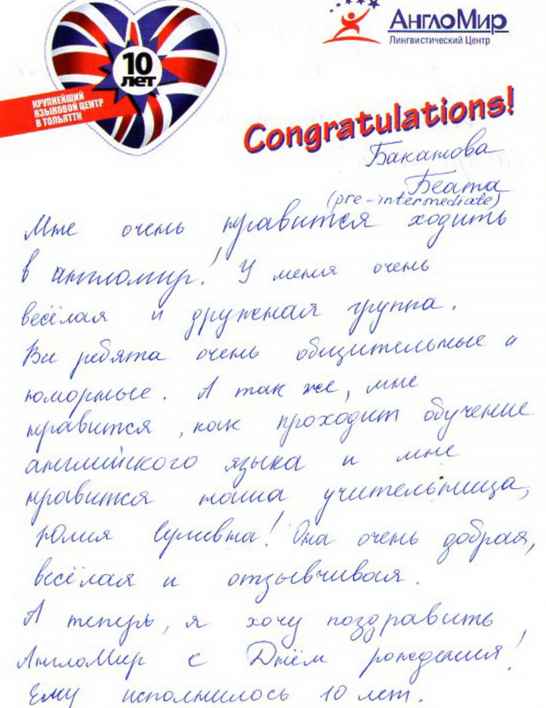 10
лет
КРУПНЕЙШИЙ
ЯЗЫКОВОЙ ЦЕНТР
В ТОЛЬЯТТИ
АнглоМир
Лингвистический Центр
Congratulations!
Беата
(pre-intermediate)
Мне очень нравится ходить
в англомир! У меня очень
весёлая и дружная группа.
Все ребята очень общительные и
юморные. А так же, мне
нравится, как проходит обучение
английского языка и мне
нравится наша учительница,
Юлия! Она очень добрая,
весёлая и отзывчивая.
А теперь, я хочу поздравить
АнглоМир с Днём рождения!
Ему исполнилось 10 лет.